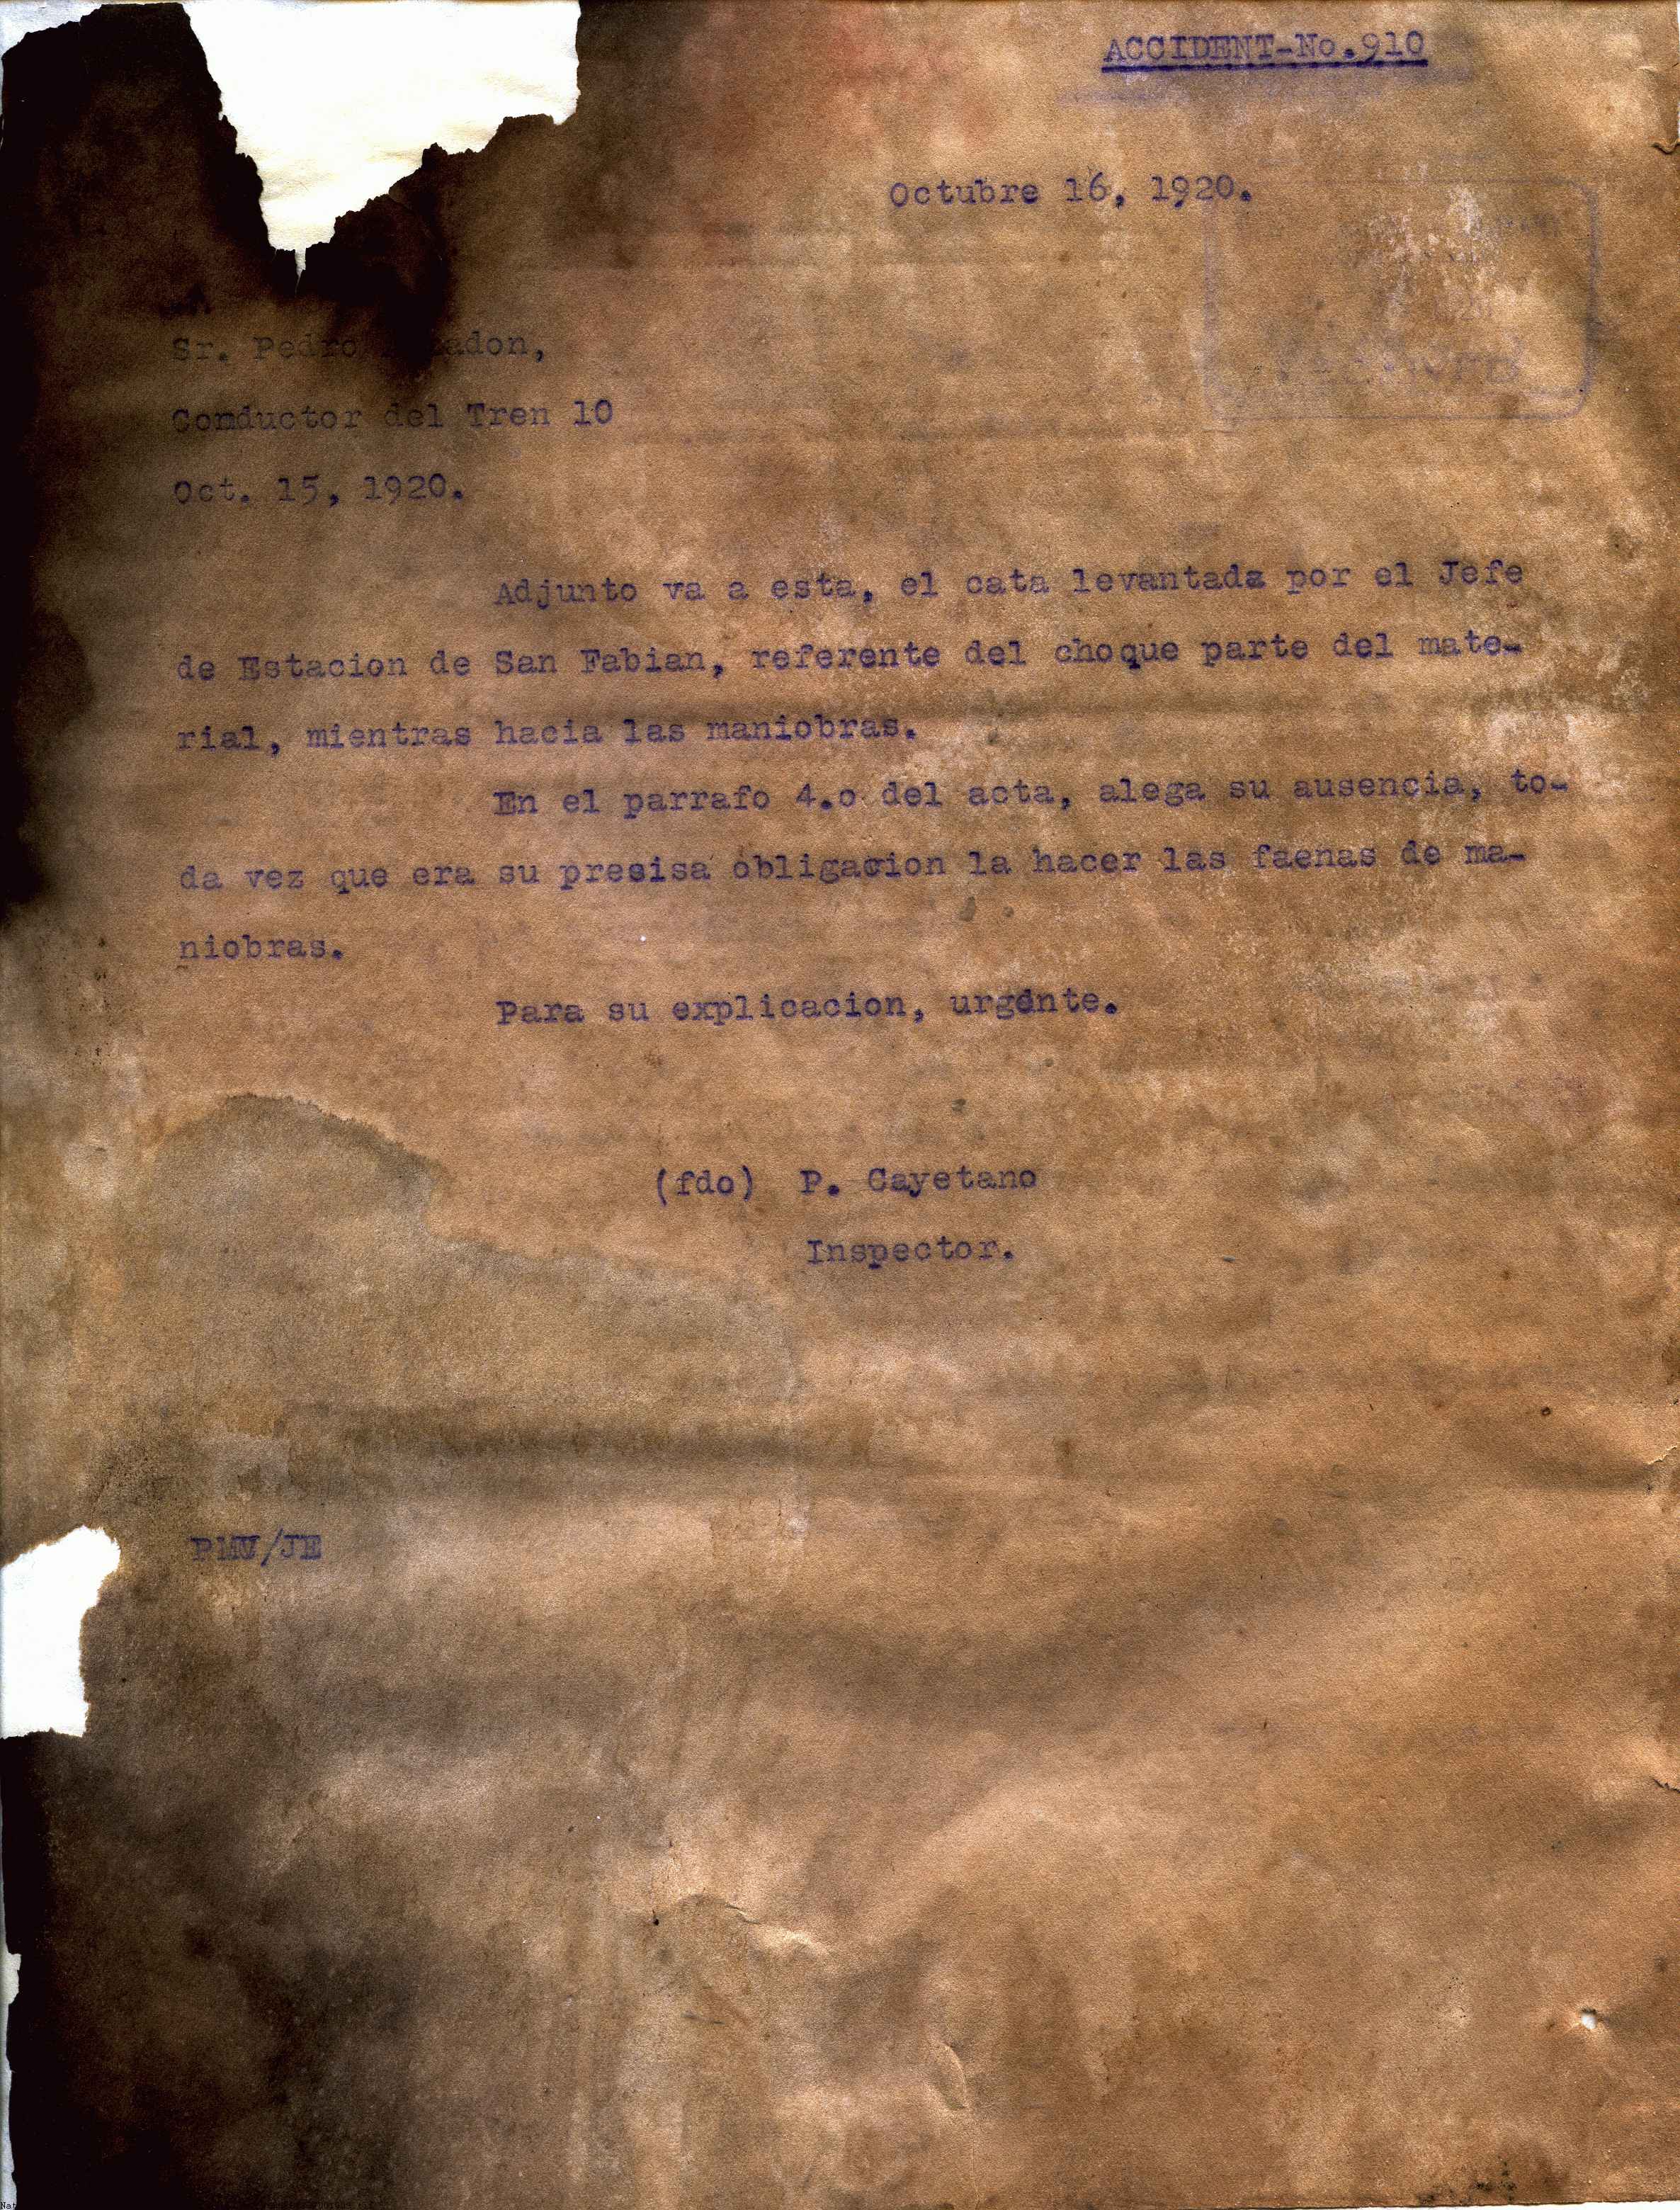 ACCIDENT-No.910
Octubre 16, 1920.
Sr. Pedro
Conductor del Tren 10
Oct. 15, 1920.
Adjunto va a esta, el cata levantada por el Jefe
de Estacion de San Fabian, referente del choque parte del mate-
rial, mientras hacia las maniobras.
En el parrafo 4.o del acta, alega su ausencia, to-
da vez que era su presisa obligacion la hacer las faenas de ma-
niobras.
Para su explicacion, urgdnte.
(fdo) P. Cayetano
Inspector.
PMV/JE